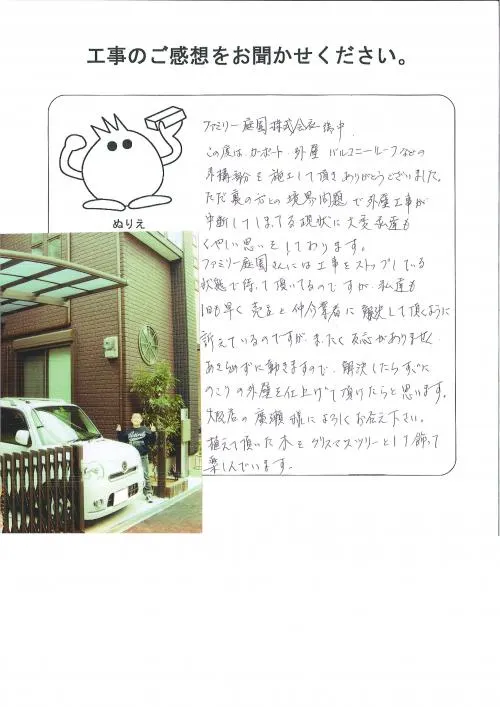 工事のご感想をお聞かせください。
ぬりえ
ファミリー庭園株式会社 御中
この度は、カーポート、外壁、バルコニールーフなどの
外構部分を施工して頂きありがとうございました。
ただ裏の方との境界問題で外壁工事が
中断してしまってる現状に大変私達も
くやしい思いをしております。
ファミリー庭園さんには工事をストップしている
状態で待って頂いてるのですが、私達も
1日も早く売主と仲介業者に解決して頂くように
訴えているのですが、まったく反応がありません。
あきらめずに動きますので、解決したらすぐに
のこりの外壁を仕上げて頂けたらと思います。
大阪店の廣瀬様によろしくお伝え下さい。
植えて頂いた木をクリスマスツリーとして飾って
楽しんでいます。